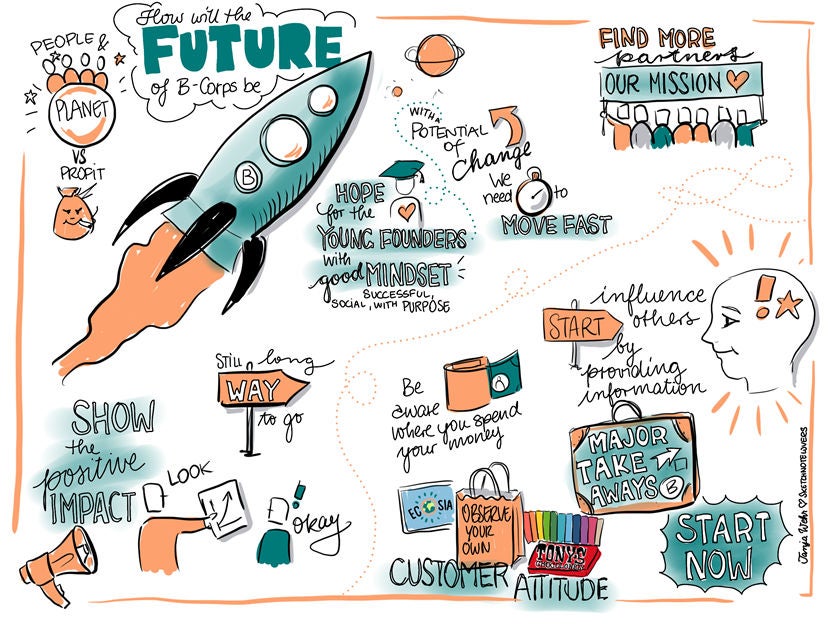 How will the
FUTURE
of B-Corps be
PEOPLE &
PLANET
VS
PROFIT
B
WITH A
POTENTIAL
of
Change
We
need
to
MOVE FAST
HOPE
for the
YOUNG FOUNDERS
with
good MINDSET
SUCCESSFUL,
SOCIAL, WITH PURPOSE
FIND MORE
partners
OUR MISSION
START
influence
others
by
providing
information
STILL long
WAY
to go
SHOW
the
positive
IMPACT
LOOK
okay
Be
aware
where you spend
your money
ECOSIA
OBSERVE
YOUR
OWN
TONY'S
CUSTOMER
ATTITUDE
MAJOR
TAKE
AWAYS B
START
NOW
Tanja Wehr ♡ SKETCHNOTELOVERS